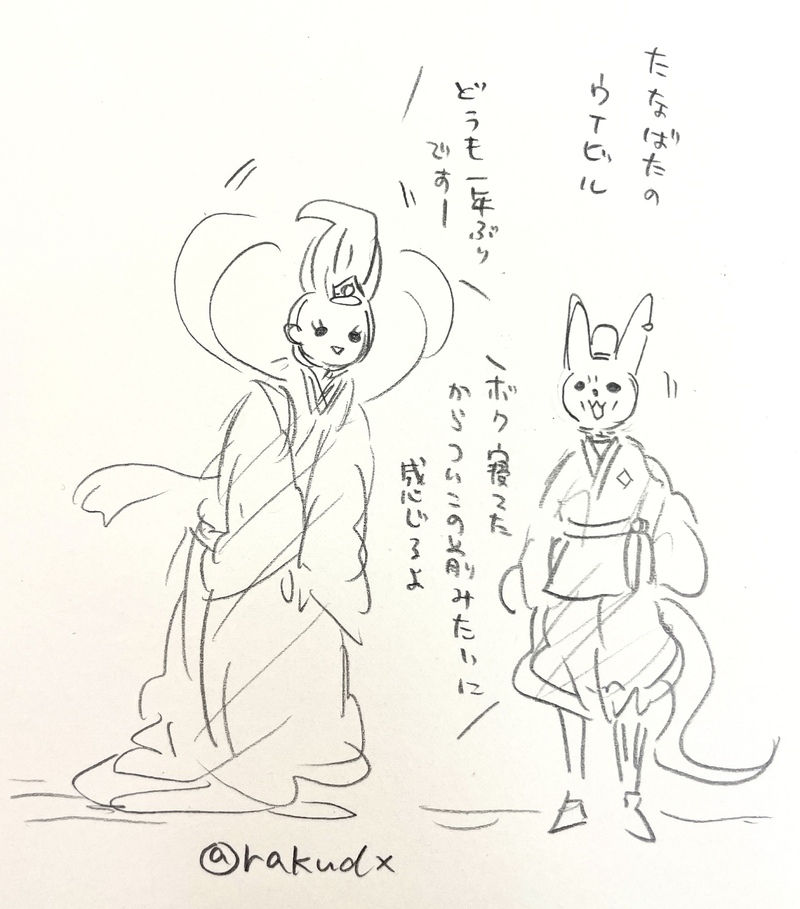 たなばたの
ウイビル
どうも一年ぶり
ですー
ボク寝てた
からついこの前みたいに
感じるよ
@rakudx